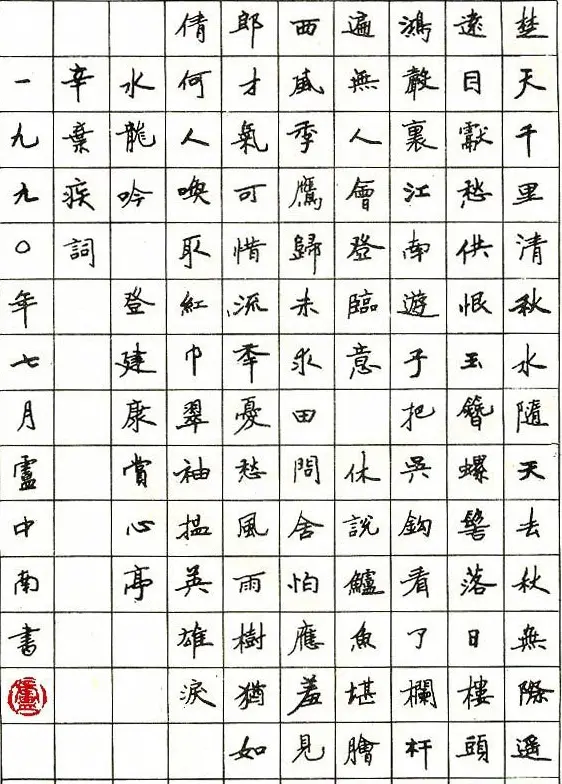 楚天千里清秋水隨天去秋無際遥
遠目獻愁供恨玉簪螺髻落日樓頭
鴻聲裏江南遊子把吳鈎看了欄杆
遍無人會登臨意 休説鱸魚堪膾
西風季鷹歸未求田問舍怕應羞見
郎才氣可惜流秊憂愁風雨樹猶如
倩何人喚取紅巾翠袖揾英雄淚
水龍吟 登建康賞心亭
辛棄疾詞
一九九〇年七月盧中南書